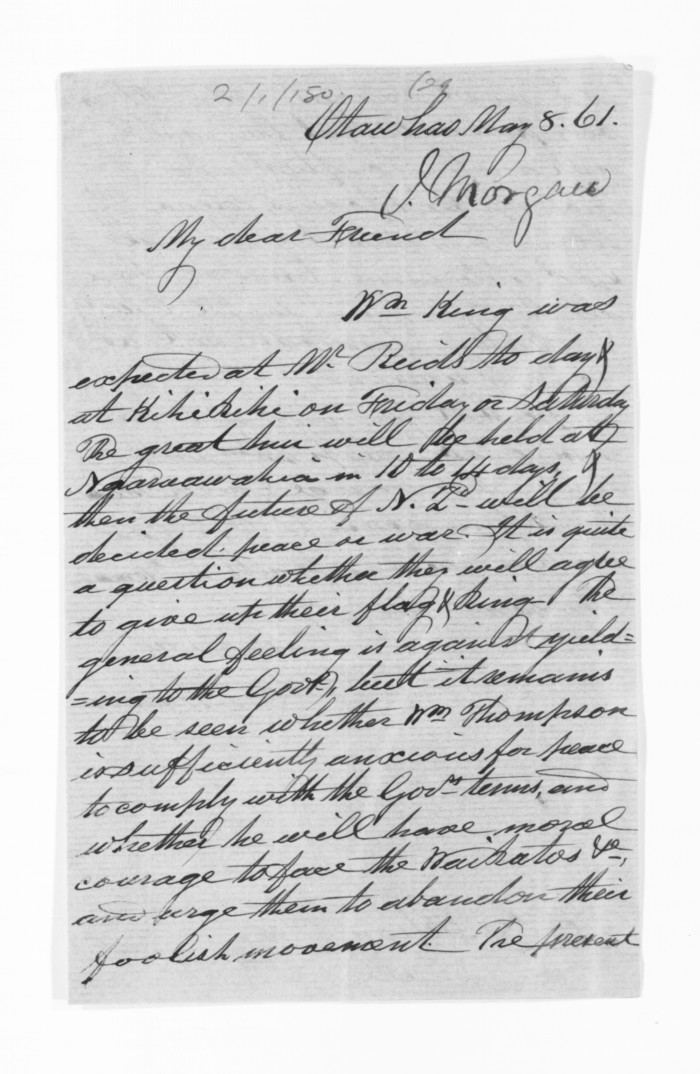 2/1/180. 129
Otawhao May 8. 61.
J. Morgan
My dear Friend
Wm King was
expected at Mr Reids to day &
at Kihikihi on Friday or Saturday
The great hui will be held at
Ngaruawahia in 10 to 14 days, &
then the future of N. Zd will be
decided. peace or war. It is quite
a question whether they will agree
to give up their flag & King The
general feeling is against yield=
=ing to the Govr, but it remains
to be seen whether Wm Thompson
is sufficiently anxious for peace
to comply with the Govrs terms, and
whether he will have moral
courage to face the Waikatos &c,
and urge them to abandon their
foolish movement. The present